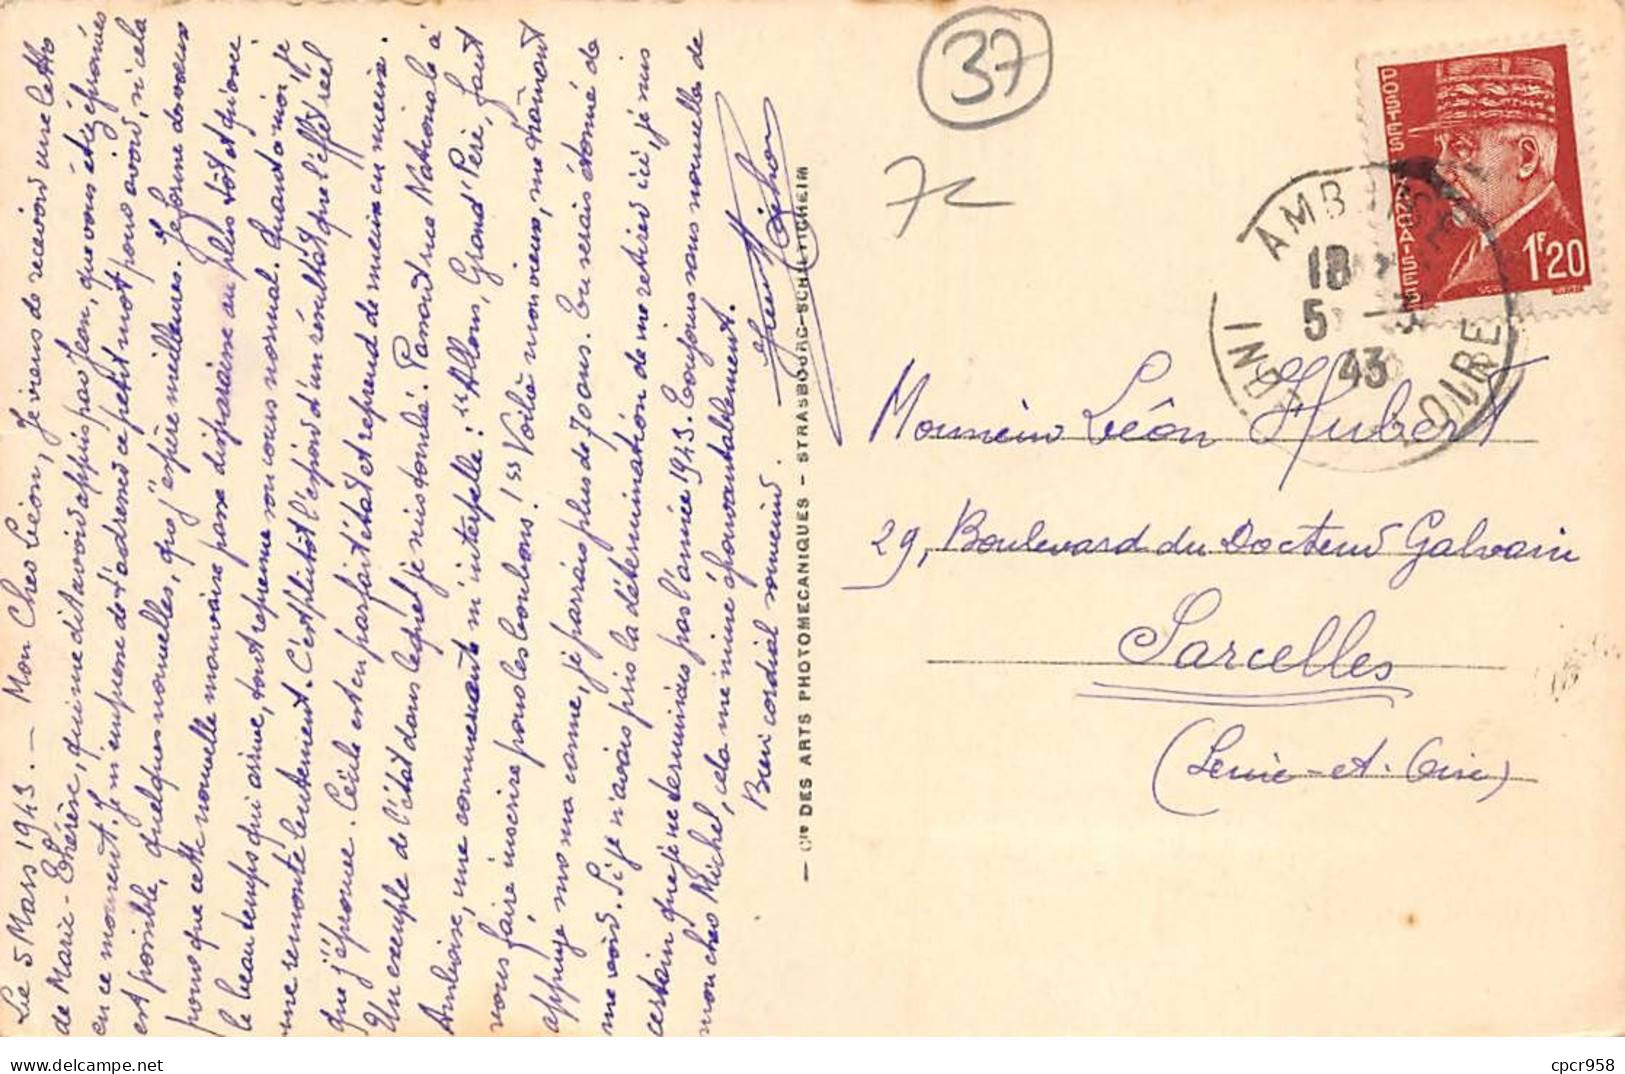 Le 5 Mars 1943. — Mon Cher Léon, Je viens de recevoir une lettre
de Marie-Thérèse, qui me dit avoir appris par Jean, que vous étiez éprouvés
en ce moment. Je m'empresse de t'adresser ce petit mot pour avoir, si cela
est possible, quelques nouvelles, que j'espère meilleures. Je forme des vœux
pour que cette nouvelle mauvaise passe disparaisse au plus tôt et qu'avec
le beau temps qui arrive, tout reprenne son cours normal. Quant à moi je
me remonte lentement. C'est plutôt l'espoir d'un résultat que l'effet réel
que j'éprouve. Cécile est en parfait état et reprend de mieux en mieux.
Un exemple de l'état dans lequel je suis tombé: Passant rue Nationale à
Amboise, une commerçante m'interpelle: "Allons, Grand'Père, faut
vous faire inscrire pour les boulons!" Voilà mon vieux, me traînant
appuyé sur ma canne, je parrais plus de 70 ans. Tu serais étonné de
me voir. Si je n'avais pris la détermination de me retirer ici, je suis
certain que je ne terminais pas l'année 1943. Toujours sans nouvelles de
mon cher Michel, cela me mine épouvantablement.
Bien cordial souvenir.
— Cie DES ARTS PHOTOMECANIQUES - STRASBOURG-SCHILTIGHEIM
37
7c
POSTES FRANÇAISES
1F20
AMBOISE
18
5 -3
43
INDRE LOIRE
Monsieur Léon Hubert
29, Boulevard du Docteur Galvain
Sarcelles
(Seine-et-Oise)
cpcr958